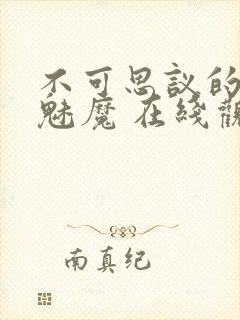 不可思议的
魅魔 在线观
南真纪